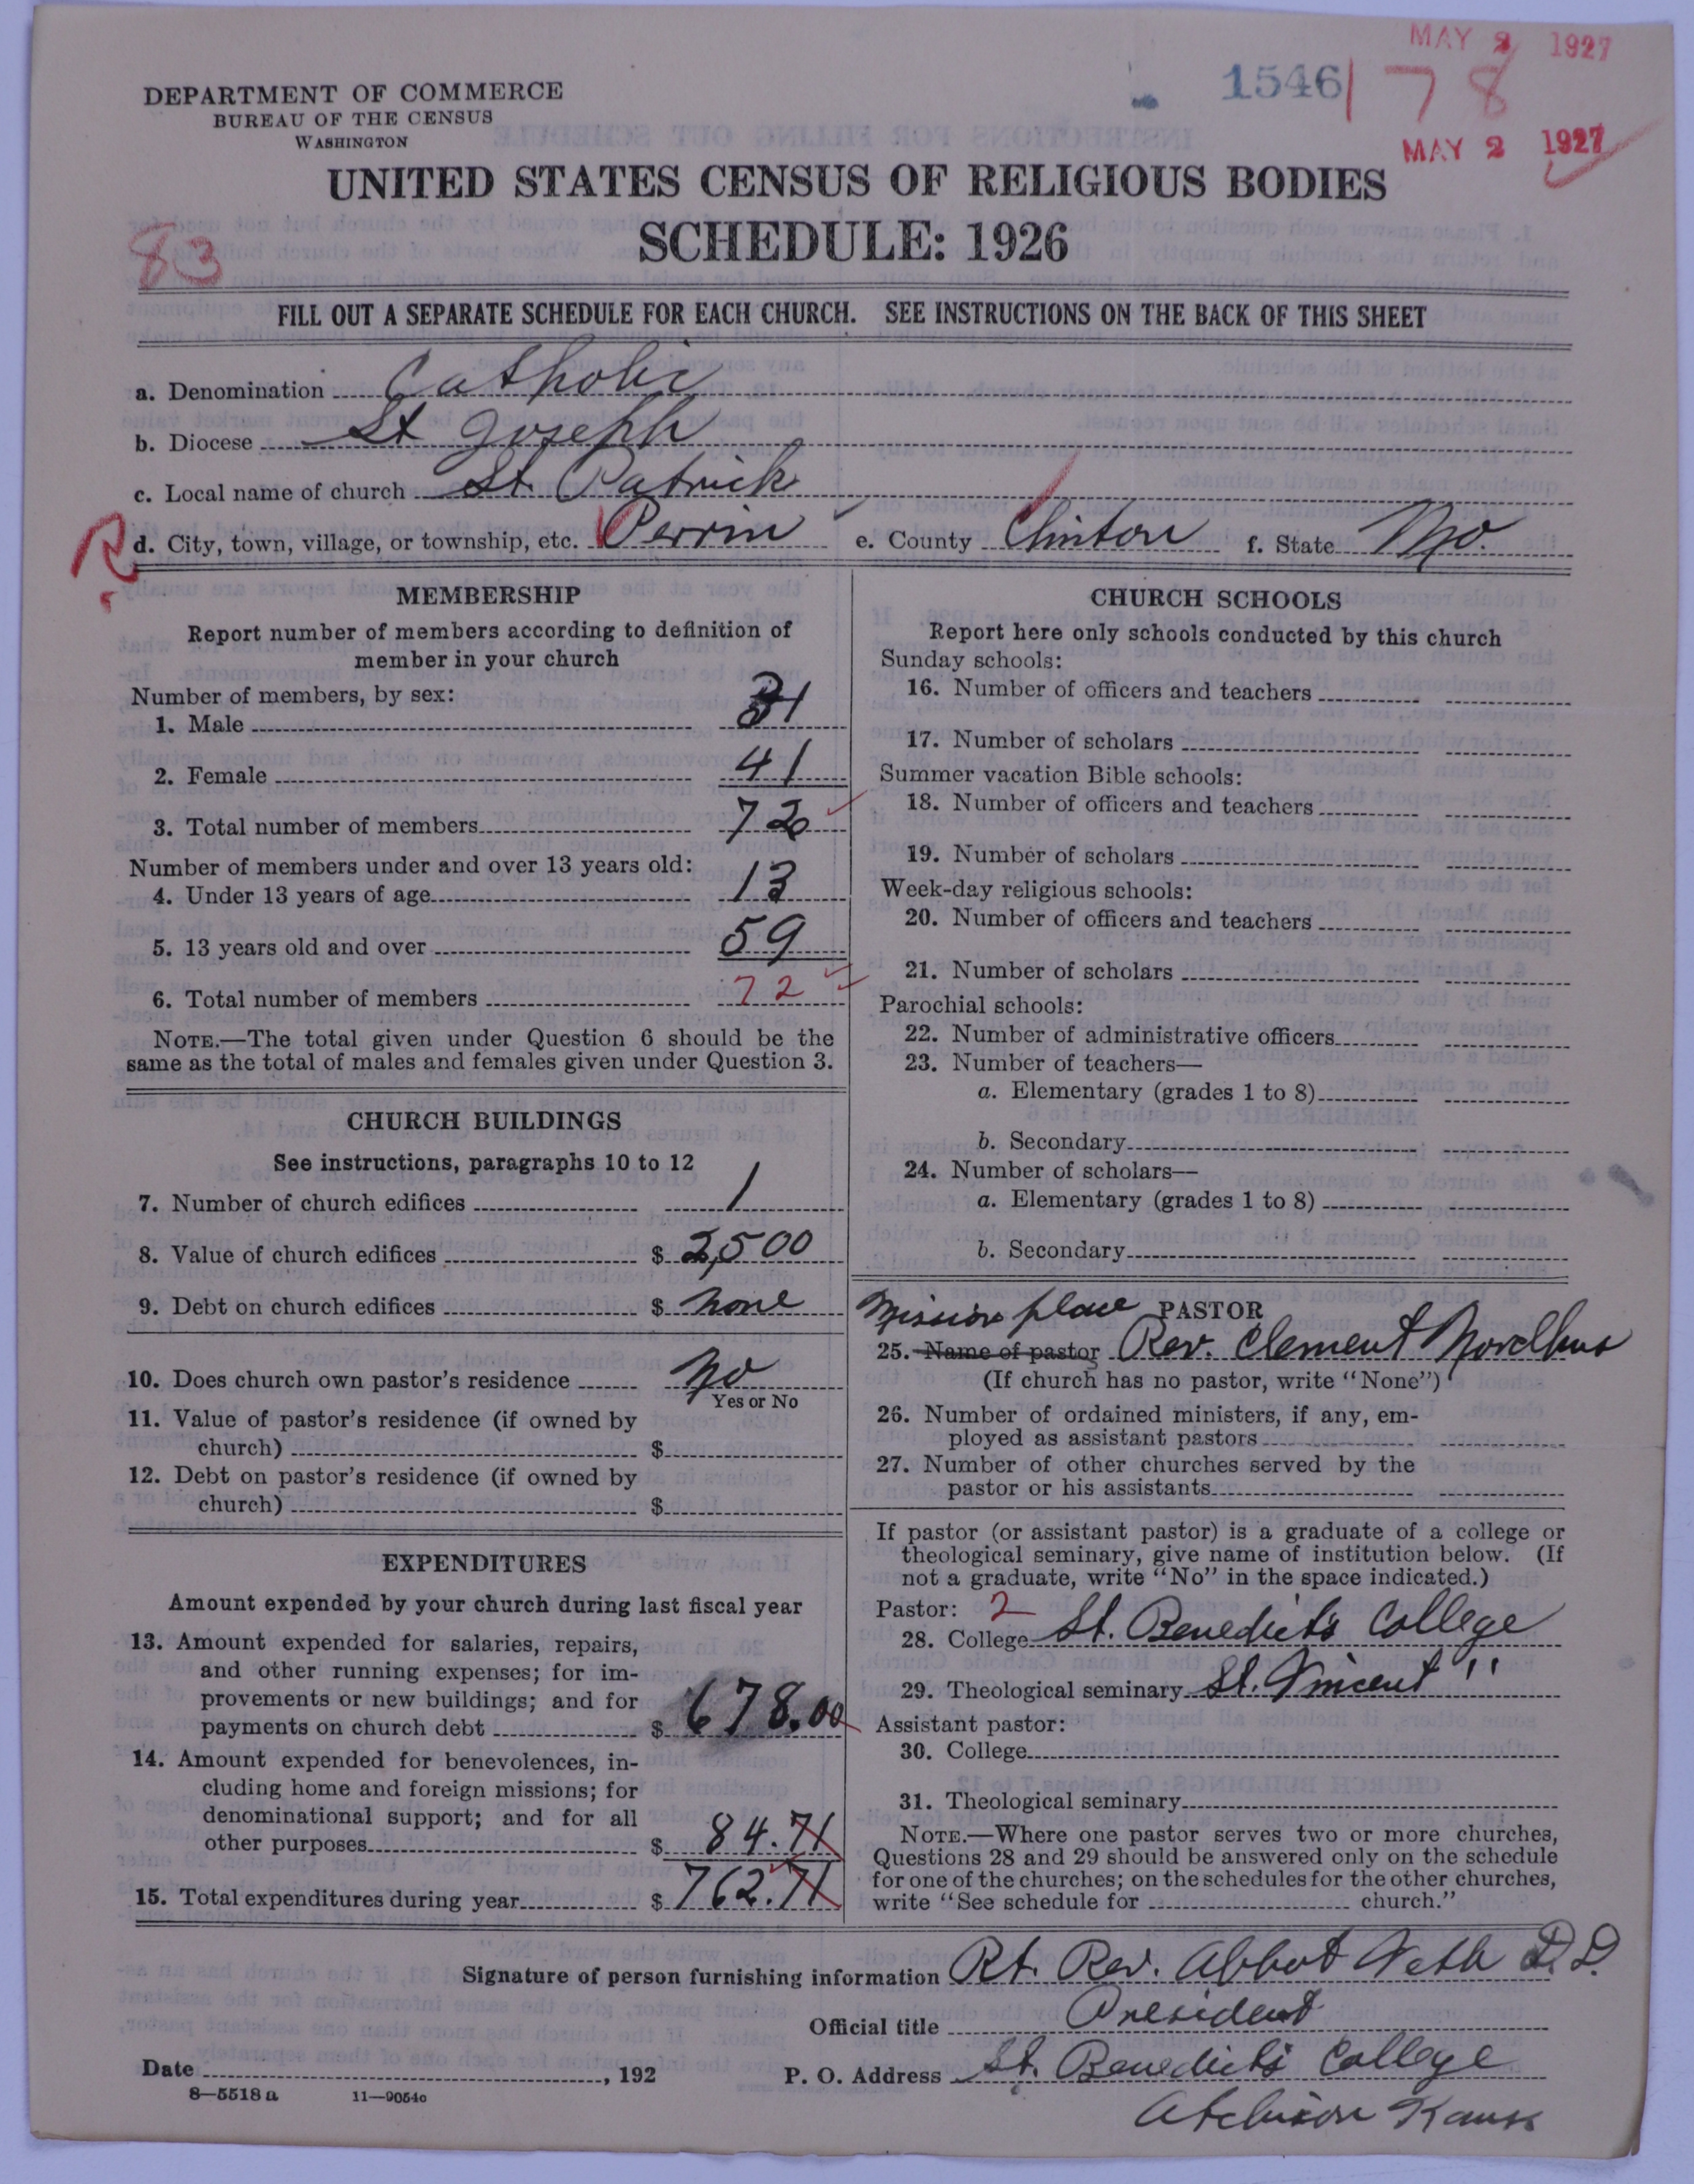 MAY 2 1927
1546 | 78
MAY 2 1927
DEPARTMENT OF COMMERCE
BUREAU OF THE CENSUS
WASHINGTON
UNITED STATES CENSUS OF RELIGIOUS BODIES
SCHEDULE: 1926
83
FILL OUT A SEPARATE SCHEDULE FOR EACH CHURCH. SEE INSTRUCTIONS ON THE BACK OF THIS SHEET
a. Denomination Catholic
b. Diocese St Joseph
c. Local name of church St. Patrick
R d. City, town, village, or township, etc. Perrin e. County Clinton f. State Mo.
MEMBERSHIP
Report number of members according to definition of
member in your church
Number of members, by sex:
1. Male 31
2. Female 41
3. Total number of members 72
Number of members under and over 13 years old:
4. Under 13 years of age 13
5. 13 years old and over 59
6. Total number of members 72
NOTE.—The total given under Question 6 should be the
same as the total of males and females given under Question 3.
CHURCH BUILDINGS
See instructions, paragraphs 10 to 12
7. Number of church edifices 1
8. Value of church edifices $ 2,500
9. Debt on church edifices $ none
10. Does church own pastor's residence No
Yes or No
11. Value of pastor's residence (if owned by
church) $
12. Debt on pastor's residence (if owned by
church) $
EXPENDITURES
Amount expended by your church during last fiscal year
13. Amount expended for salaries, repairs,
and other running expenses; for im-
provements or new buildings; and for
payments on church debt $ 678.00
14. Amount expended for benevolences, in-
cluding home and foreign missions; for
denominational support; and for all
other purposes $ 84.71
15. Total expenditures during year $ 762.71
CHURCH SCHOOLS
Report here only schools conducted by this church
Sunday schools:
16. Number of officers and teachers
17. Number of scholars
Summer vacation Bible schools:
18. Number of officers and teachers
19. Number of scholars
Week-day religious schools:
20. Number of officers and teachers
21. Number of scholars
Parochial schools:
22. Number of administrative officers
23. Number of teachers—
a. Elementary (grades 1 to 8)
b. Secondary
24. Number of scholars—
a. Elementary (grades 1 to 8)
b. Secondary
Mission place PASTOR
25. Name of pastor Rev. Clement Nordhus
(If church has no pastor, write "None")
26. Number of ordained ministers, if any, em-
ployed as assistant pastors
27. Number of other churches served by the
pastor or his assistants
If pastor (or assistant pastor) is a graduate of a college or
theological seminary, give name of institution below. (If
not a graduate, write "No" in the space indicated.)
Pastor: 2
28. College St. Benedict's College
29. Theological seminary St. Vincent "
Assistant pastor:
30. College
31. Theological seminary
NOTE.—Where one pastor serves two or more churches,
Questions 28 and 29 should be answered only on the schedule
for one of the churches; on the schedules for the other churches,
write "See schedule for church."
Signature of person furnishing information Rt. Rev. Abbot Veth D.D.
Official title President
Date , 192 P. O. Address St. Benedict's College
8—5518 a 11—9054c
Atchison Kans